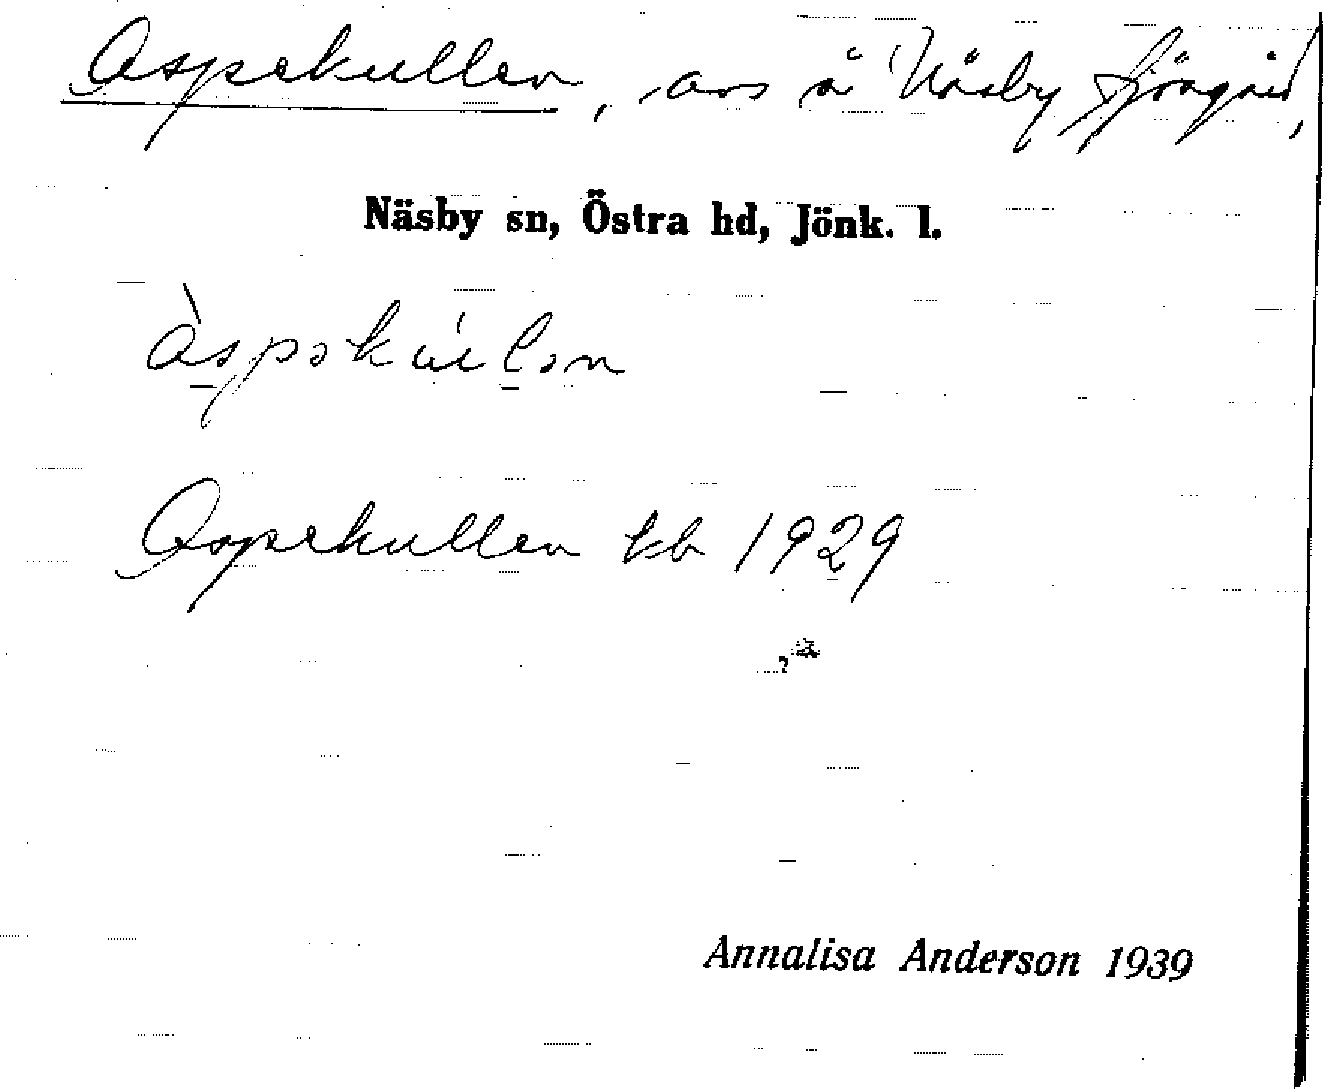 Aspekullen, avs å Näsby
Näsby sn, Östra hd, Jönk. l.
Aspekullen kb 1929
Annalisa Anderson 1939